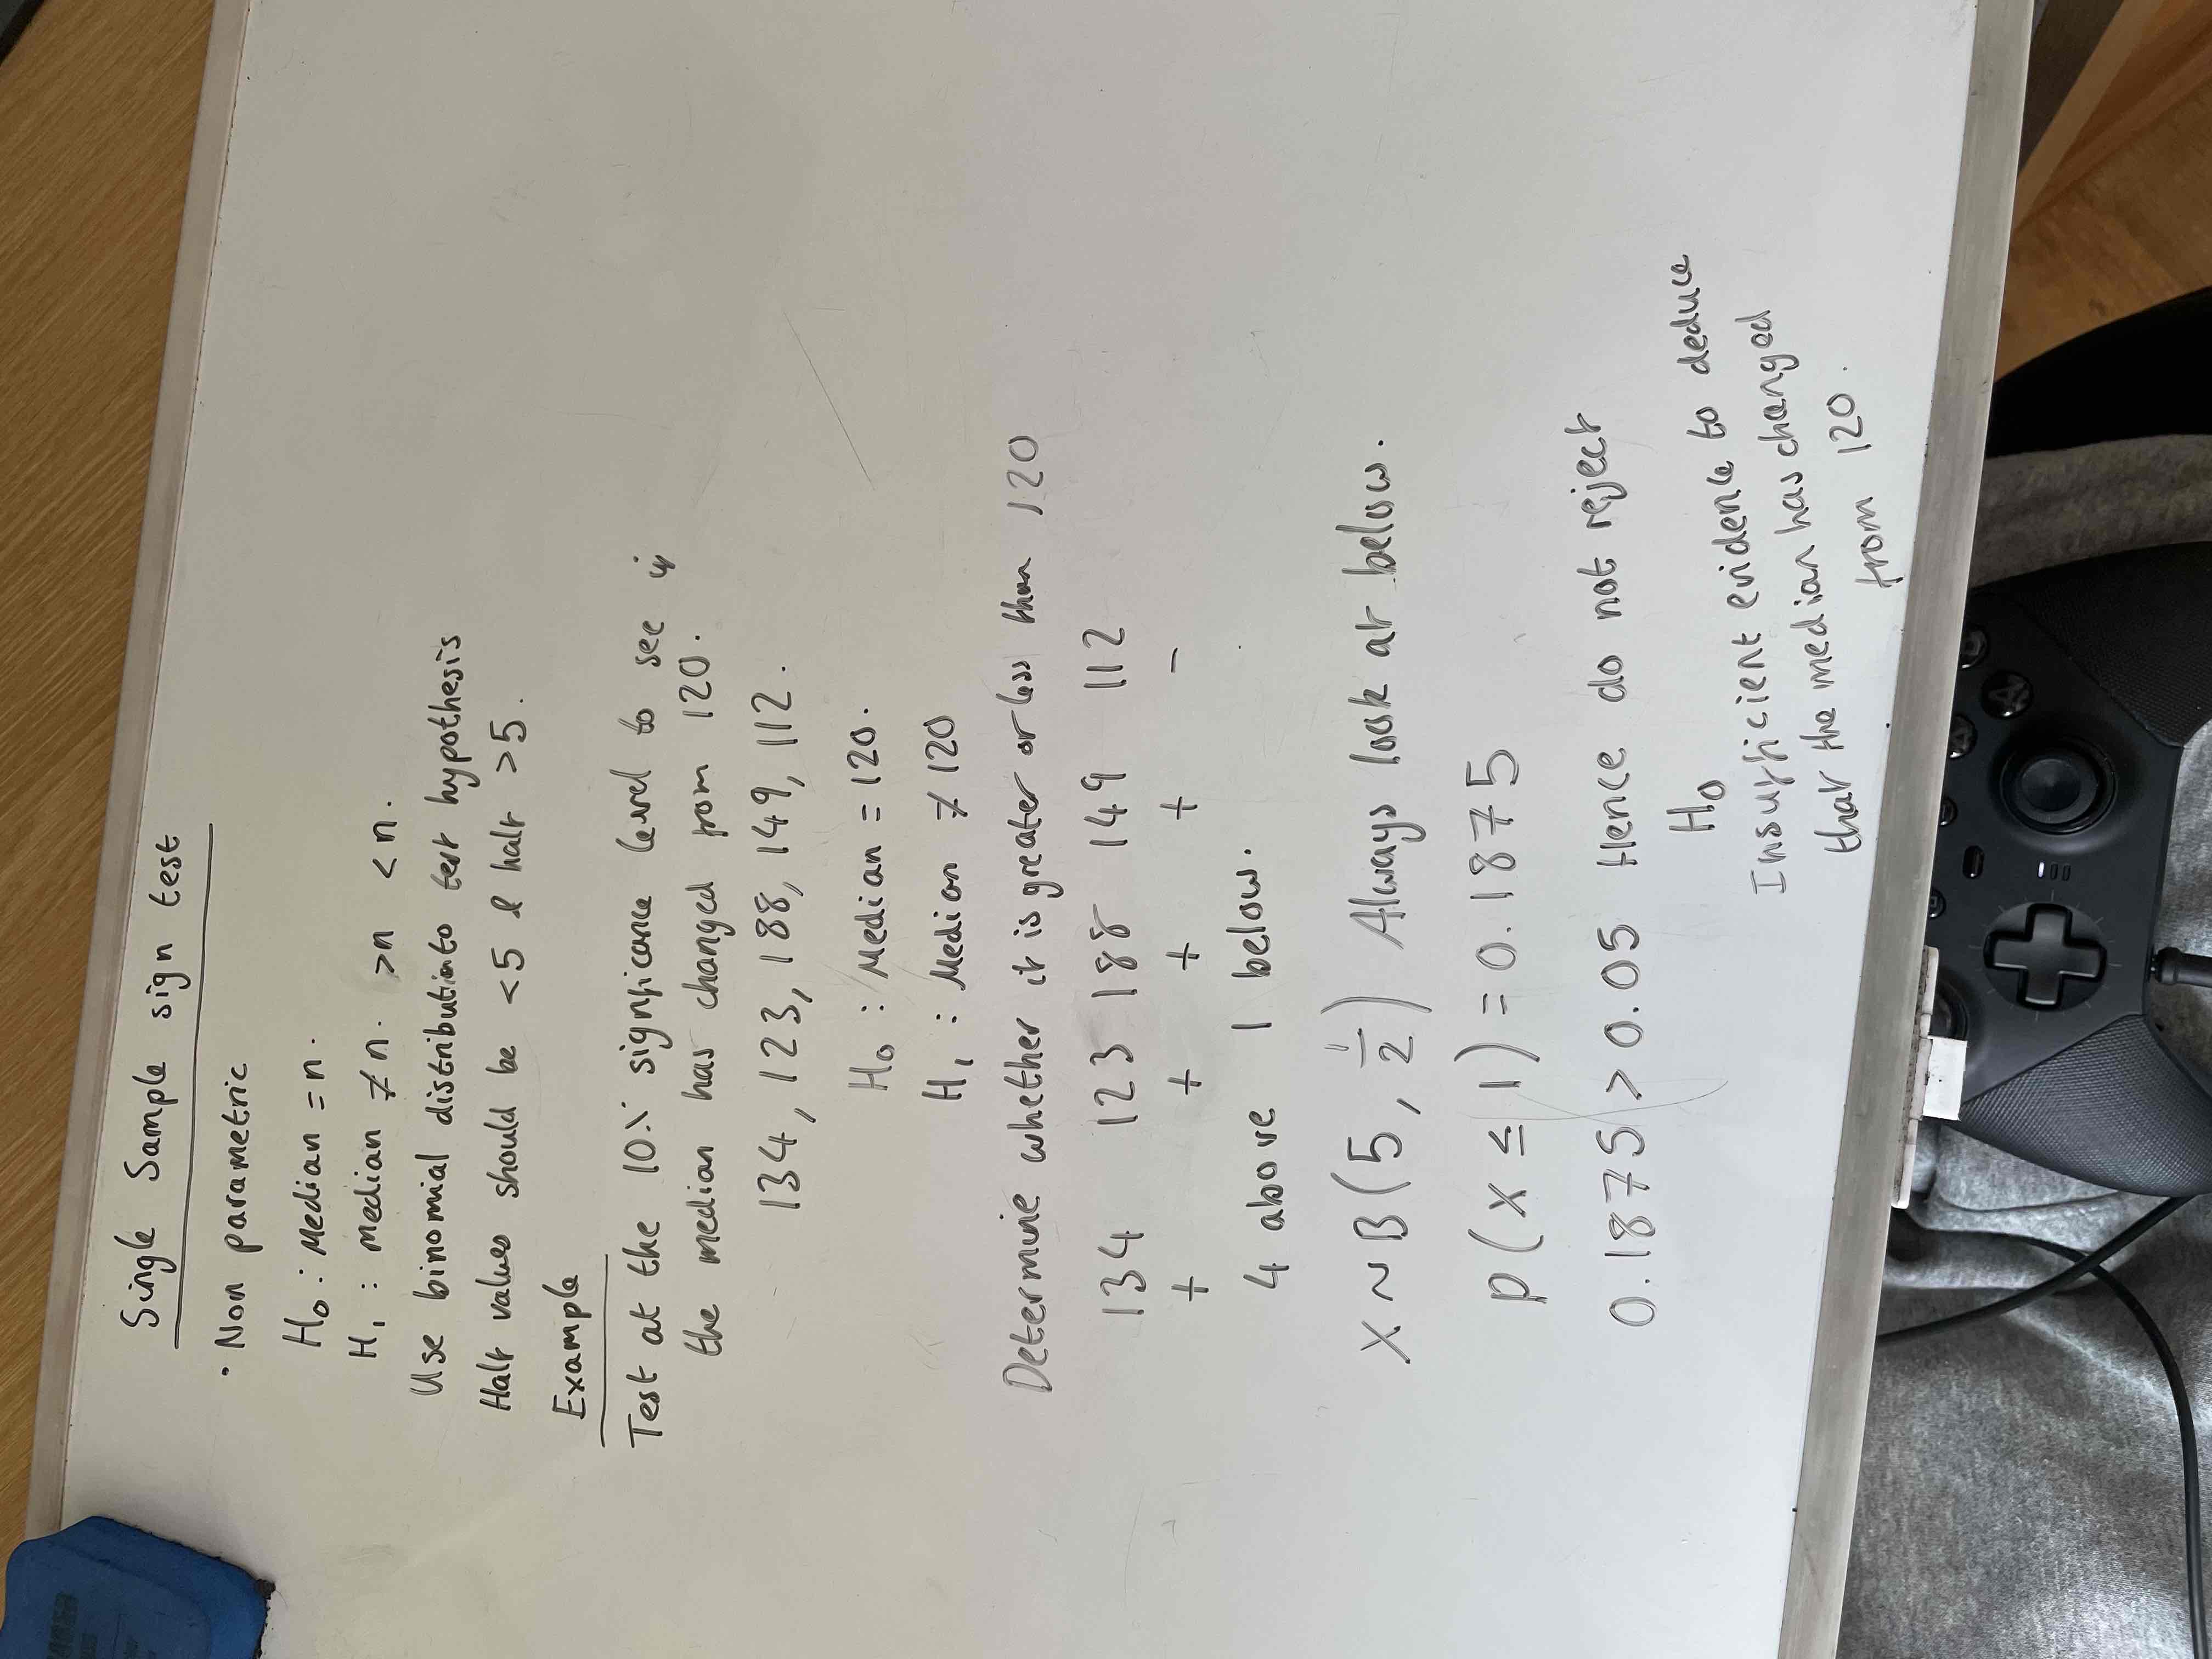 Single Sample sign test
· Non parametric
H₀ : Median = n.
H₁ : median ≠ n. >n <n.
Use binomial distribution to test hypothesis
Half values should be <5 & half >5.
Example
Test at the 10% significance level to see if
the median has changed from 120.
134, 123, 188, 149, 112.
H₀ : Median = 120.
H₁ : Median ≠ 120
Determine whether it is greater or less than 120
134 123 188 149 112
+ + + + -
4 above 1 below.
X ~ B(5, 1/2) Always look at below.
P(X ≤ 1) = 0.1875
0.1875 > 0.05 Hence do not reject
H₀
Insufficient evidence to deduce
that the median has changed
from 120.
A